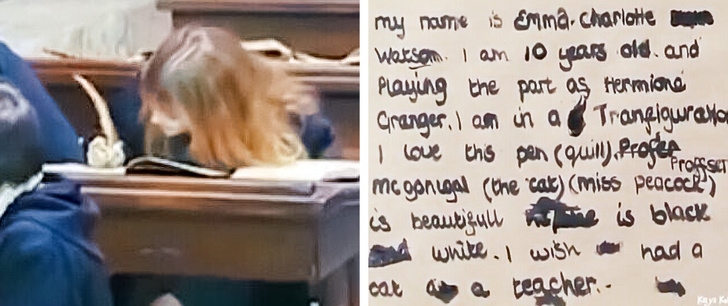 my name is Emma. Charlotte
Watson. I am 10 years old. and
Playing the part as Hermione
Granger. I am in a Tranfiguration
I love this pen (quill). Profer
Proffser
mcgonigal (the cat) (miss peacock)
is beautifull is black
white. I wish had a
cat as a teacher.